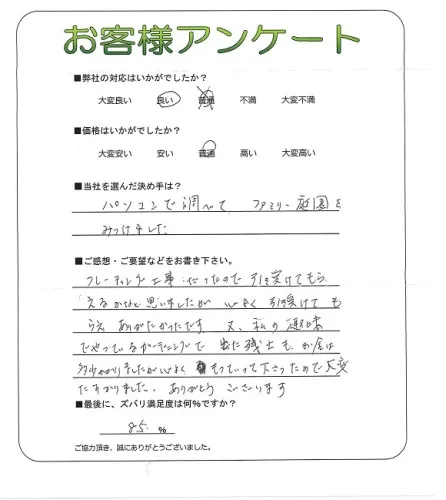 お客様アンケート
■弊社の対応はいかがでしたか？
大変良い 良い 普通 不満 大変不満
■価格はいかがでしたか？
大変安い 安い 普通 高い 大変高い
■当社を選んだ決め手は？
パソコンで調べて ファミリー庭園を
みつけました
■ご感想・ご要望などをお書き下さい。
フレーティング工事だったので引き受けてもら
えるかなと思いましたが 心よく引き受けても
らえ ありがたかったです 又、私の趣味
でやっているガーデニングで 出た残土も、お金は
多少かかりましたが心よく もっていって下さったので大変
たすかりました。ありがとう ございます
■最後に、ズバリ満足度は何％ですか？
85. %
ご協力頂き、誠にありがとうございました。